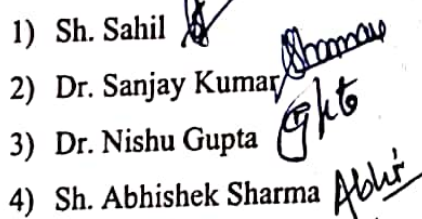 1) Sh. Sahil
2) Dr. Sanjay Kumar
3) Dr. Nishu Gupta
4) Sh. Abhishek Sharma Abhi